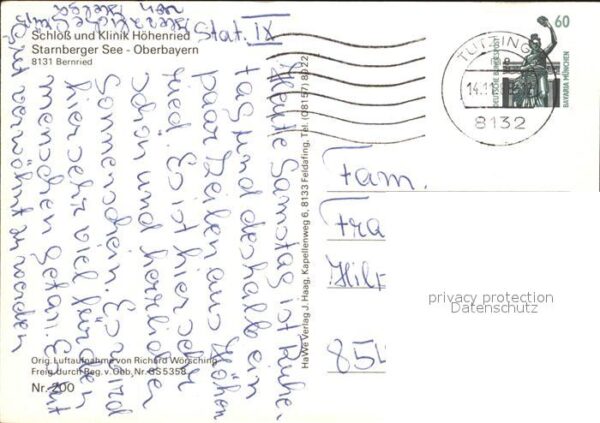 Schloß und Klinik Höhenried
Starnberger See - Oberbayern
8131 Bernried
Stat. IX
Heute Samstag ist Ruhe-
tag und deshalb ein
paar Zeilen aus Höhen
ried. Es ist hier sehr
schön und herrlicher
Sonnenschein. Es wird
hier sehr viel für den
menschen getan. Es tut
gut verwöhnt zu werden
von
Orig. Luftaufnahme von Richard Wörsching
Freig. durch Reg. v. Obb. Nr. GS 5358
Nr. 200
HaWe Verlag J. Haag, Kapellenweg 6, 8133 Feldafing, Tel. (08157) 8022
60
DEUTSCHE BUNDESPOST
BAVARIA MÜNCHEN
TUTZING
14.11.
8132
Fam.
Fra
Hilp
854
privacy protection
Datenschutz